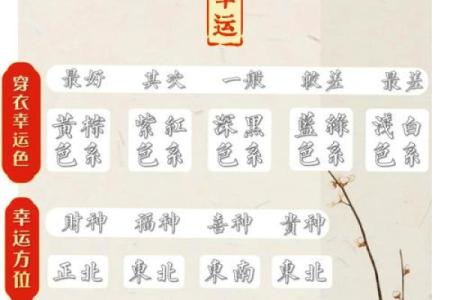 幸运
穿衣幸运色
最好 其次 一般 较差 最差
黄棕色系 紫红色系 深黑色系 蓝绿色系 浅白色系
幸运方位
财神 福神 喜神 贵神
正北 东北 东南 东北